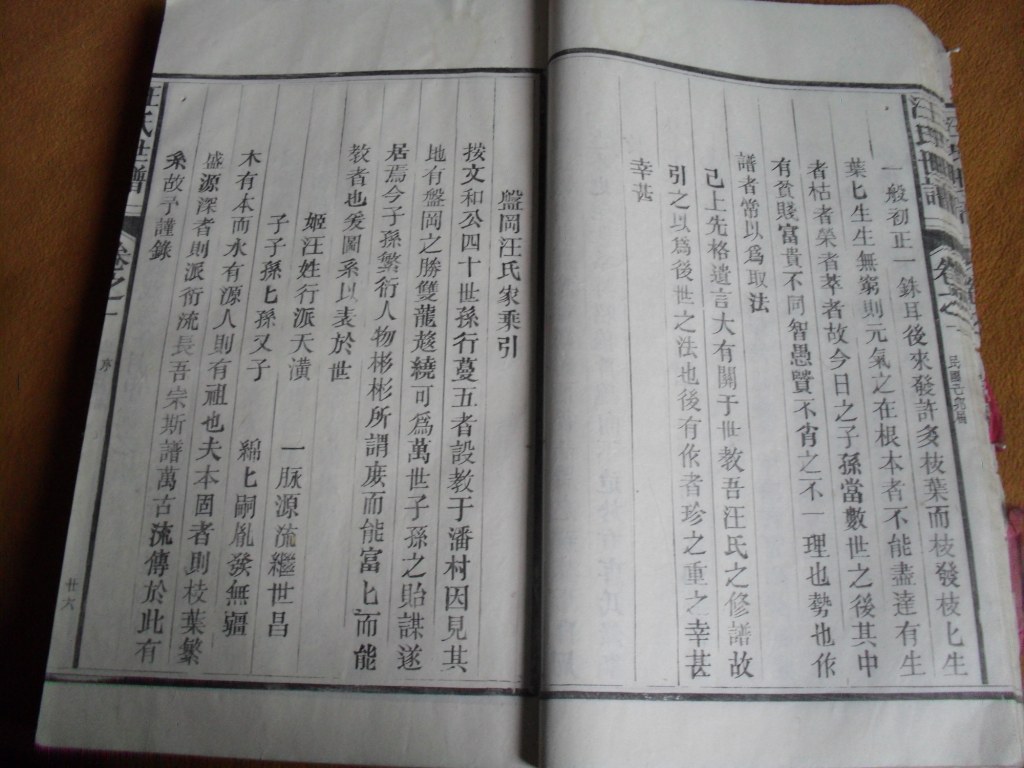 汪氏世譜
卷之一
一般初正一銖耳後來發許多枝葉而枝發枝匕生
葉匕生生無窮則元氣之在根本者不能盡達有生
者枯者榮者萃者故今日之子孫當數世之後其中
有貧賤富貴不同智愚賢不肖之不一理也勢也作
譜者常以爲取法
己上先格遺言大有關于世教吾汪氏之修譜故
引之以爲後世之法也後有作者珍之重之幸甚
幸甚
盤岡汪氏家乘引
按文和公四十世孫行蔓五者設教于潘村因見其
地有盤岡之勝雙龍趍繞可爲萬世子孫之貽謀遂
居焉今子孫繁衍人物彬彬所謂庶而能富匕而能
教者也爰圖系以表於世
姬汪姓行派天潢 一脉源流繼世昌
子子孫匕孫又子 綿匕嗣胤發無疆
木有本而水有源人則有祖也夫本固者則枝葉繁
盛源深者則派衍流長吾宗斯譜萬古流傳於此有
系故予謹錄
汪氏世譜
卷之一
序
廿六